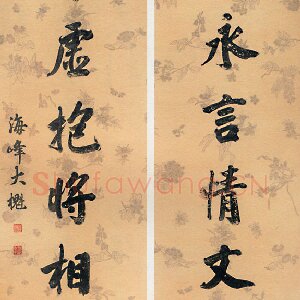 永言情丈
虛抱將相
海峰大櫆
Shufawang.CN